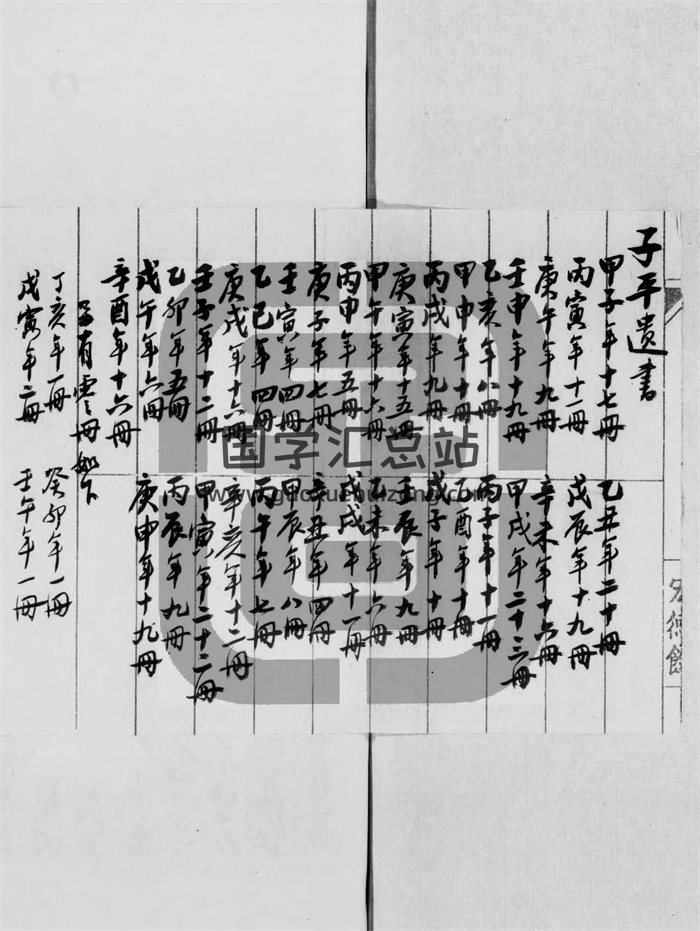 子平遺書
甲子年十七冊 乙丑年二十冊
丙寅年十一冊 戊辰年十九冊
庚午年九冊 辛未年十六冊
壬申年十九冊 甲戌年二十三冊
乙亥年八冊 丙子年十一冊
甲申年十冊 乙酉年十冊
丙戌年九冊 戊子年十冊
庚寅年十五冊 壬辰年九冊
甲午年十六冊 乙未年六冊
丙申年五冊 戊戌年十一冊
庚子年七冊 辛丑年四冊
壬寅年四冊 甲辰年八冊
乙巳年四冊 丙午年七冊
庚戌年十六冊 辛亥年十二冊
壬子年十二冊 甲寅年二十二冊
乙卯年五冊 丙辰年九冊
戊午年六冊 庚申年十九冊
辛酉年十六冊
另有零冊如下
丁亥年一冊 癸卯年一冊
戊寅年二冊 壬午年一冊
国学汇总站